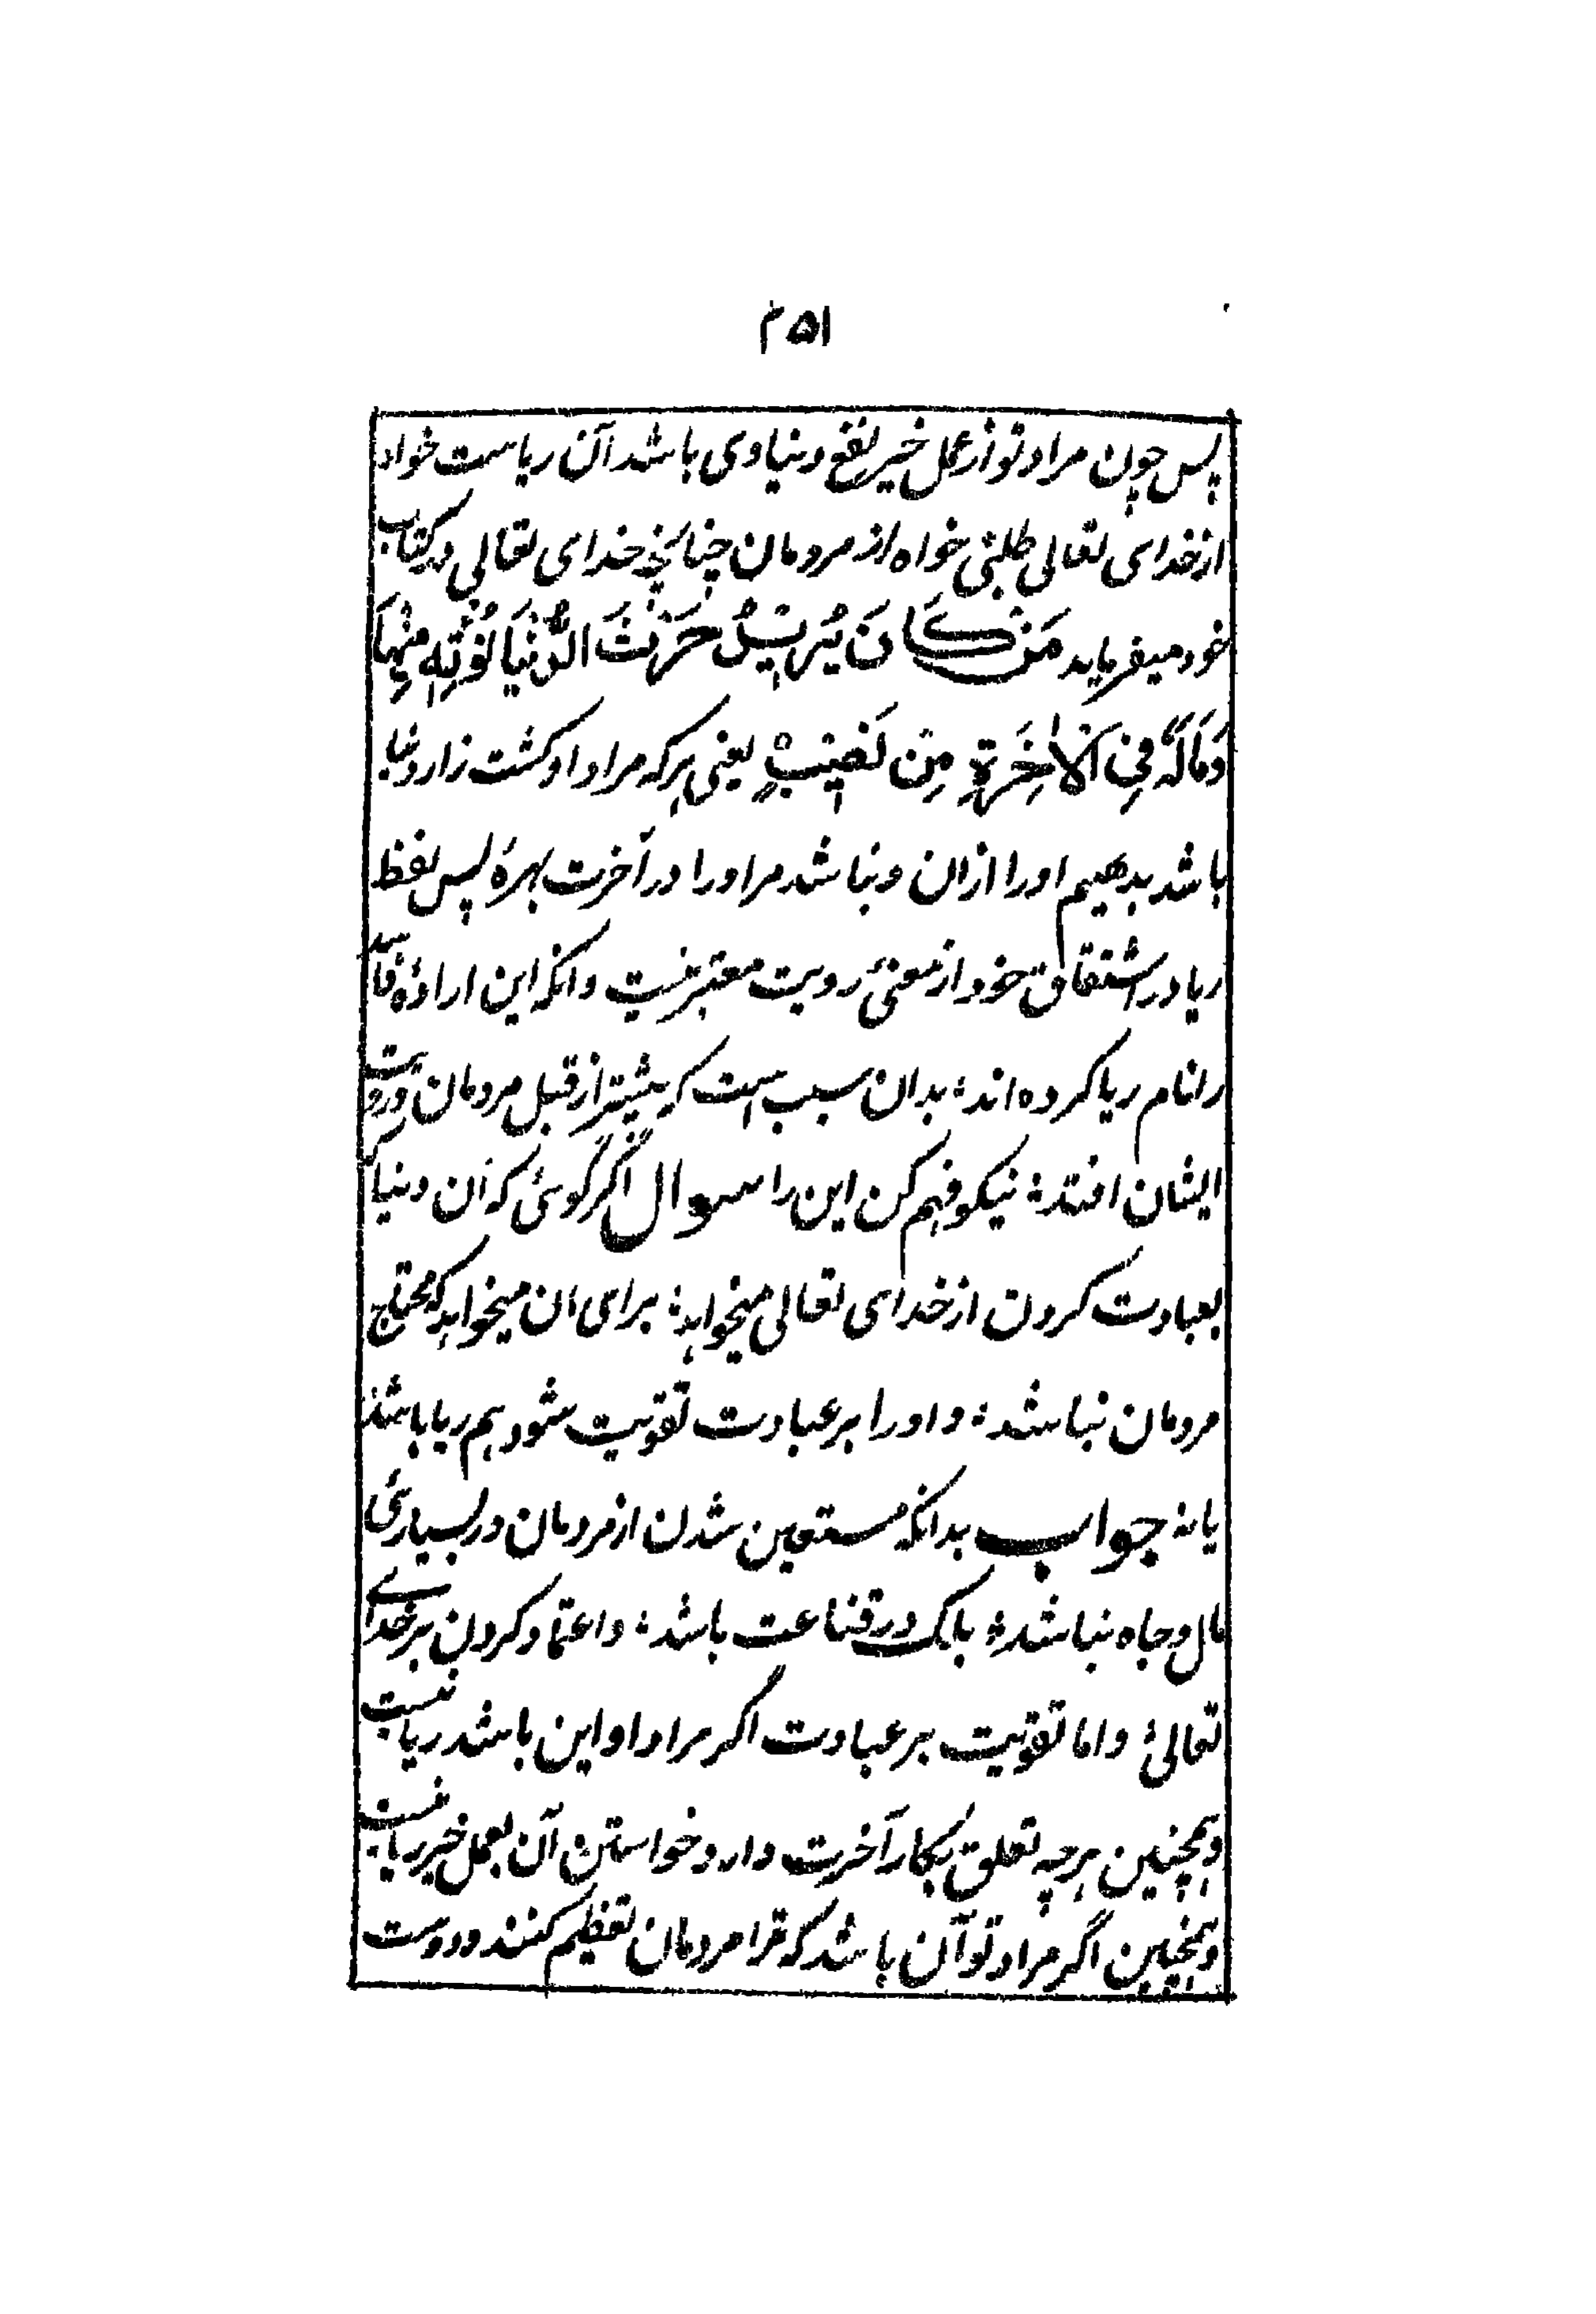 ۲۵۱
پس چون مراد تو از عمل خیر نفع دنیاوی باشد آن ریاست خواه
از خدای تعالی طلبی خواه از مردمان چنانچه خدای تعالی در کتاب
خود میفرماید مَنْ كَانَ يُرِيدُ حَرْثَ الدُّنْيَا نُؤْتِهِ مِنْهَا
وَمَا لَهُ فِي الْآخِرَةِ مِنْ نَصِيبٍ یعنی هرکه مراد او کشت زار دنیا
باشد بدهیم او را ازان و نباشد مر او را در آخرت بهرهٔ پس لفظ
ریا در اشتقاق خود از معنیٔ رویت معتبر نیست و انکه این ارادهٔ فاسد
را نام ریا کرده اند؛ بدان سبب است که بیشتر از قبل مردمان و رویت
ایشان افتد؛ نیکو فهم کن این را سوال اگر گوئی که آن دنیا که
بعبادت کردن از خدای تعالی میخواهد؛ برای آن میخواهد که محتاج
مردمان نباشد؛ و او را بر عبادت تقویت شود هم ریا باشد
یا نه جواب بدانکه مستعین شدن از مردمان در بسیاریٔ
مال و جاه نباشد؛ بلکه در قناعت باشد؛ و اعتماد کردن بر خدای
تعالیٰ و اما تقویت بر عبادت اگر مراد او این باشد ریا نیست
وهمچنین هرچه تعلق بکار آخرت دارد خواستن آن بعمل خیر ریا نیست
وهمچنین اگر مراد تو آن باشد که ترا مردمان تعظیم کنند و دوست